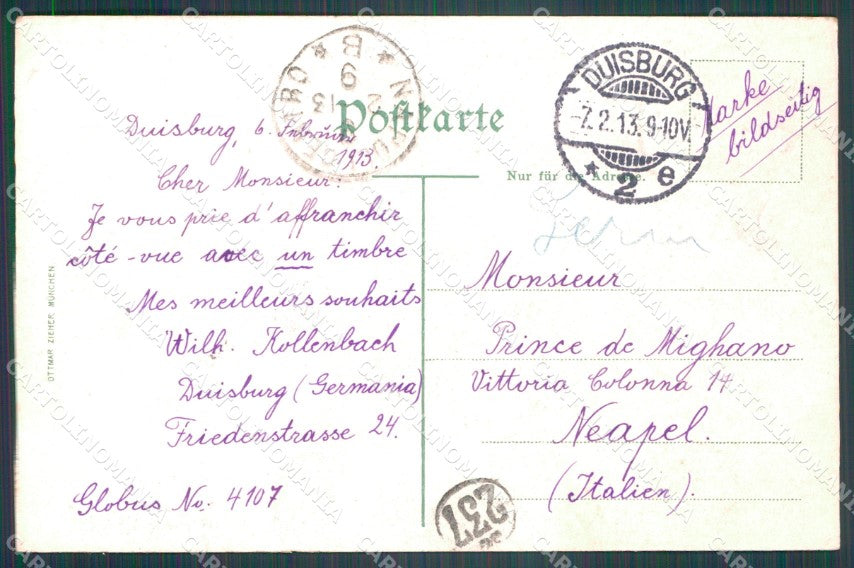 Postkarte
Nur für die Adresse.
DUISBURG
7.2.13.9-10V.
* 2 e
Marke
bildseitig
B
9
2
13
Duisburg, 6. Februar
1913.
Cher Monsieur!
Je vous prie d'affranchir
côté-vue avec un timbre
Mes meilleurs souhaits
Wilh. Kollenbach
Duisburg (Germania)
Friedenstrasse 24.
Globus No. 4107
Monsieur
Prince de Mighano
Vittoria Colonna 14
Neapel.
(Italien).
237
OTTMAR ZIEHER MÜNCHEN
CARTOLINOMANIA